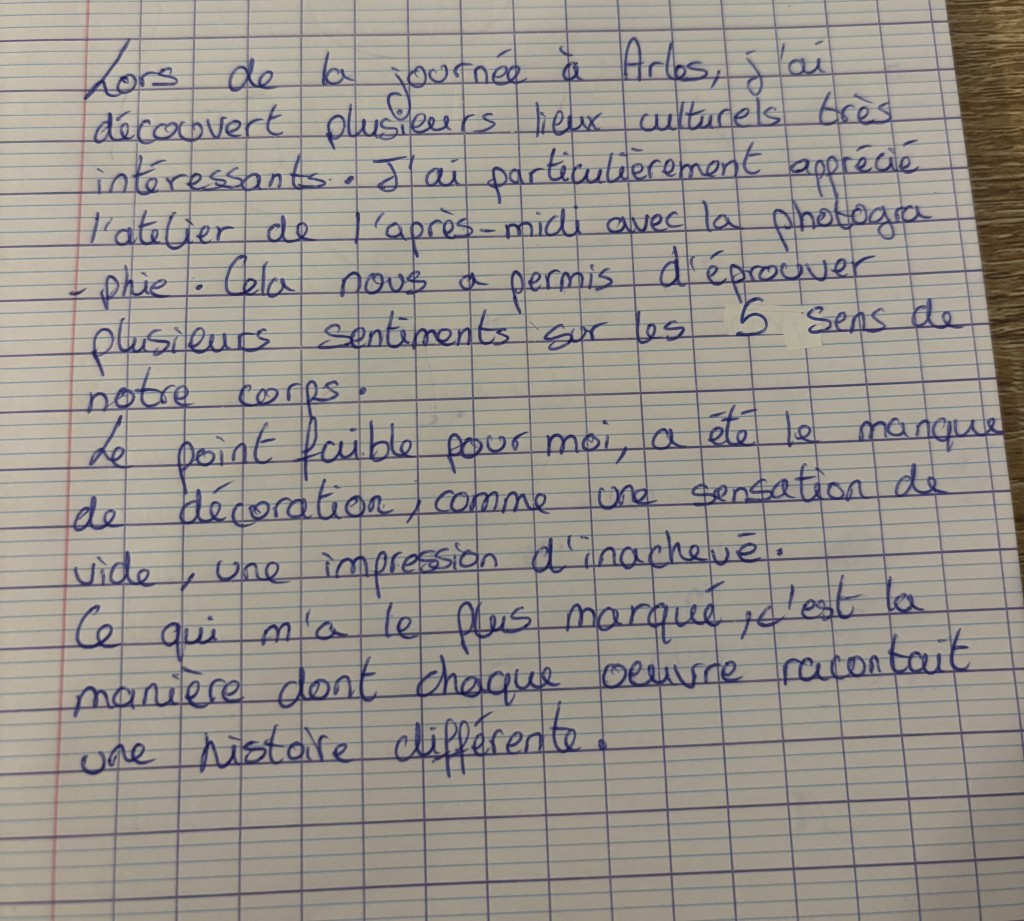 Lors de la journée à Arles, j'ai
découvert plusieurs lieux culturels très
intéressants. J'ai particulièrement apprécié
l'atelier de l'après-midi avec la photogra
- phie. Cela nous a permis d'éprouver
plusieurs sentiments sur les 5 sens de
notre corps.
Le point faible pour moi, a été le manque
de décoration, comme une sensation de
vide, une impression d'inachevé.
Ce qui m'a le plus marqué, c'est la
manière dont chaque oeuvre racontait
une histoire différente.